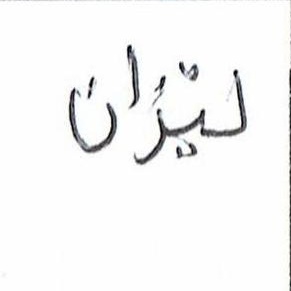 ليْرَان